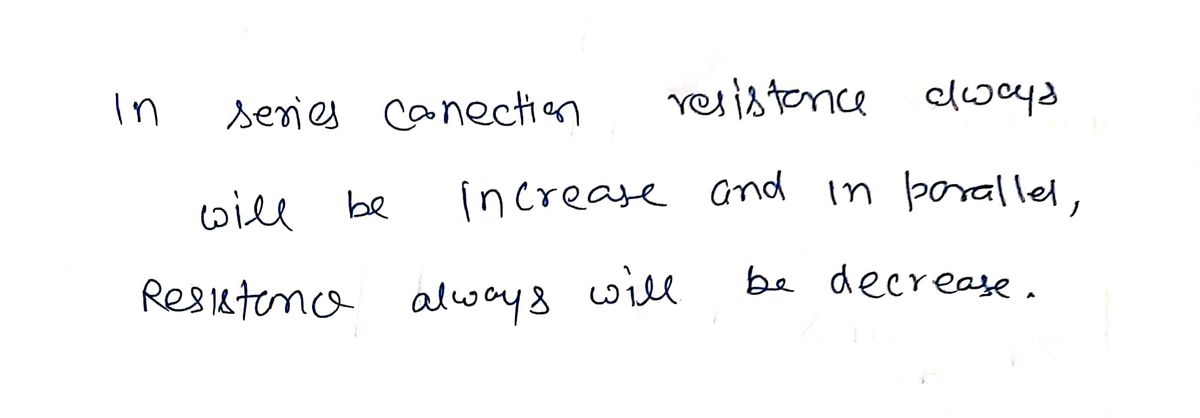 In series conection resistance always
will be increase and in parallel,
Resistance always will be decrease.